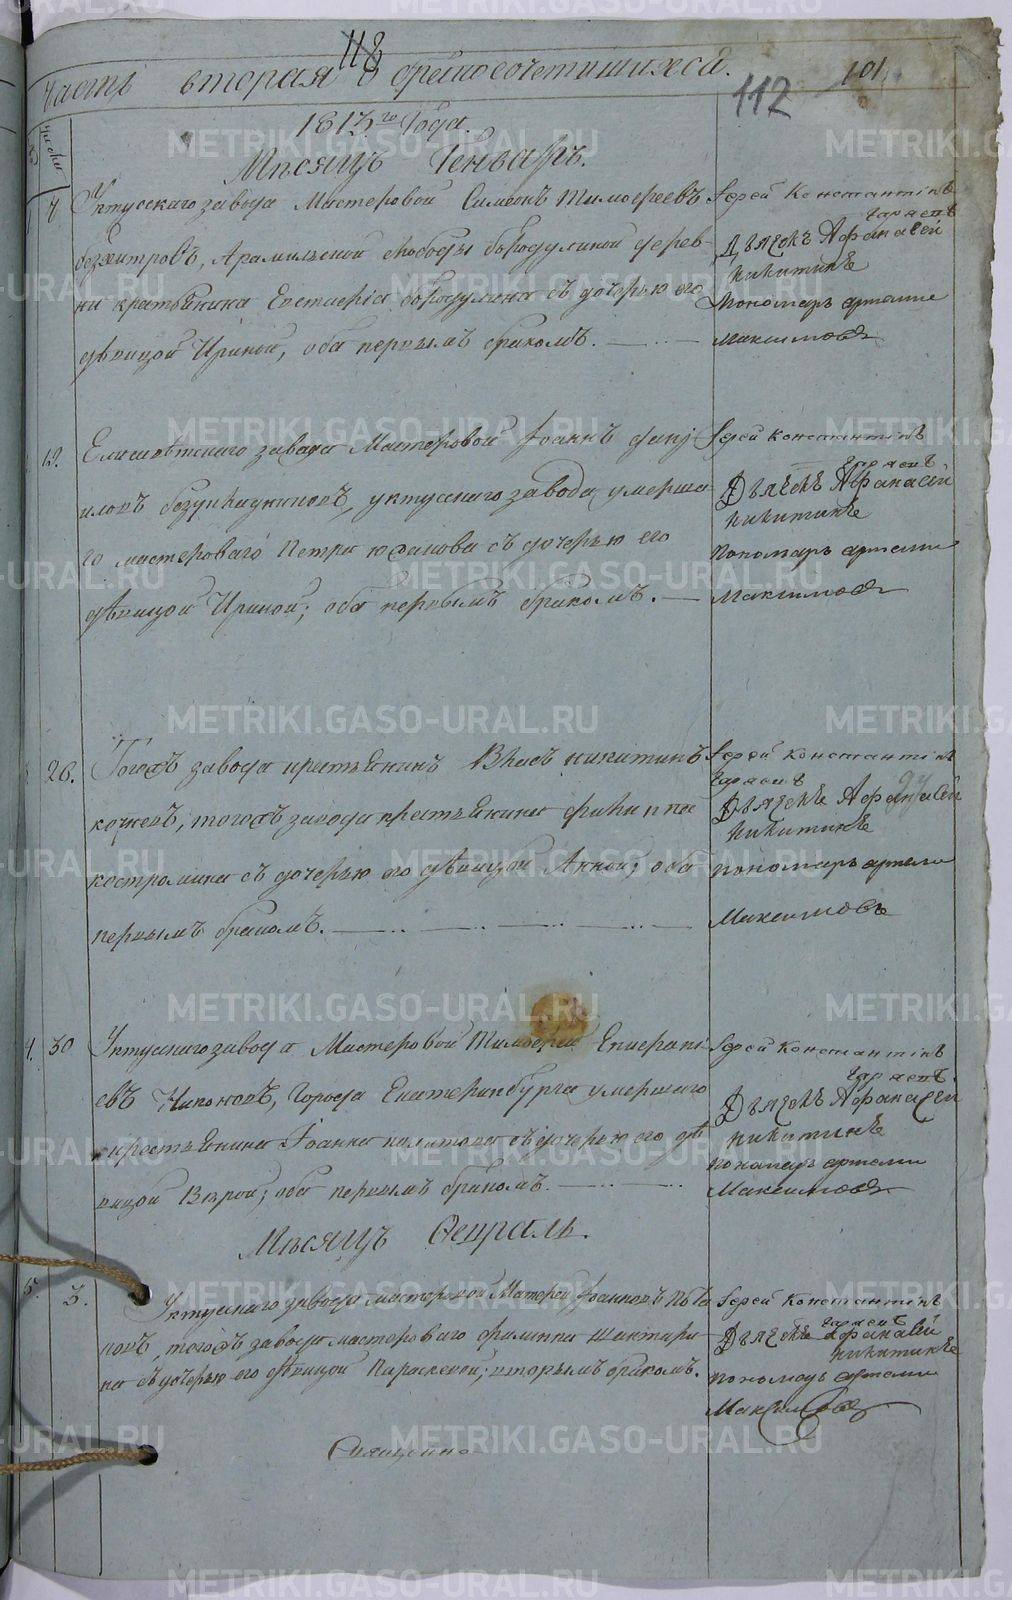 118
Часть вторая о брачно сочетшихся.
101.
112
1813го Года.
Месяцъ Генварь.
числа
7 Уктусскаго завода Мастеровой Симеонъ Тимофеевъ
Арамильской слободы бородулиной дерев-
ни крестьянина Евстигнея бородулина съ дочерью его
девицой Ириной, оба первымъ бракомъ.
Іерей Константинъ
Дьячекъ Афанасей
Никитинъ
Пономарь артеми
Максимовъ
12. Елисаветскаго завода Мастеровой Іоаннъ
уктусскаго завода умерша
го мастероваго Петра съ дочерью его
девицой Ириной; оба первымъ бракомъ.
Іерей Константинъ
Дьячекъ Афанасей
Никитинъ
Пономарь артеми
Максимовъ
26. Тогожъ завода крестьянинъ Власъ никитинъ
тогожъ завода крестьянина филиппа
костромина съ дочерью его девицой Анной; оба
первымъ бракомъ.
Іерей Константинъ
Дьячекъ Афанасей
Никитинъ
пономарь артеми
Максимовъ
4. 30 Уктусскаго завода Мастеровой Тимофей
евъ Города Екатеринбурга умершаго
крестьянина Іоанна съ дочерью его де
вицой Верой; оба первымъ бракомъ.
Іерей Константинъ
Дьячекъ Афанасей
Никитинъ
пономарь артеми
Максимовъ
Месяцъ Февраль.
5. 3. Уктусскаго завода мастеровой Матфей Іоанновъ
тогожъ завода мастероваго филиппа
на съ дочерью его девицой Параскевой; вторымъ бракомъ.
Іерей Константинъ
Дьячекъ Афанасей
Никитинъ
пономарь артеми
Максимовъ
Священно
METRIKI.GASO-URAL.RU